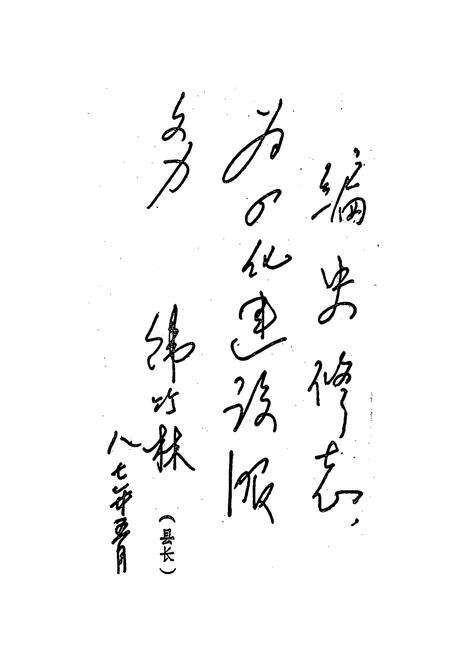 编史修志，
为四化建设服
务
韩竹林（县长）
八七年五月